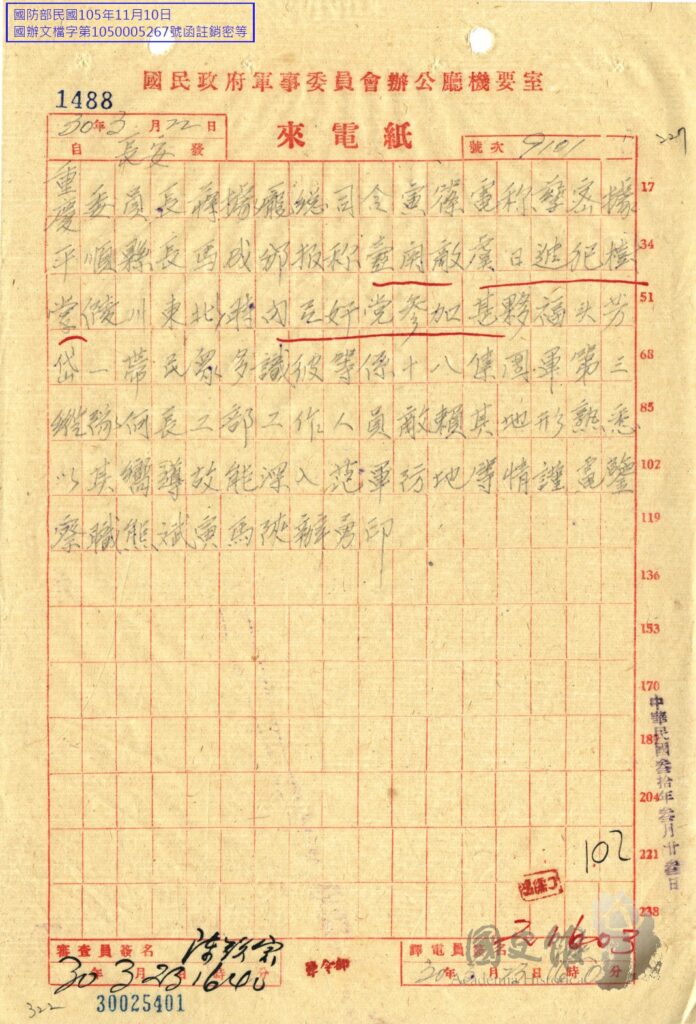 國防部民國105年11月10日
國辦文檔字第1050005267號函註銷密等
國民政府軍事委員會辦公廳機要室
1488
30年3月22日
自長安發
來電紙
號次 9101
327
重慶委員長蔣據龐總司令寅篠電称孳密據 17
平順縣長馬成邨报称壶関敵虞日進犯樹 34
掌 陵川東北時内互奸党參加甚夥福头芳 51
岱一帶民眾多識彼等係十八集團軍第三 68
縱隊何長工部工作人員敵賴其地形熟悉 85
以其嚮導故能深入范軍防地等情謹電鑒 102
察職熊斌寅馬陝辦勇印 119
136
153
170
187
204
221
238
中華民國叁拾年叁月廿叁日
102
審查員簽名
30年3月23日1640時分
譯電員簽名
30年3月23日1603時分
國史館
Academia Historica
322
30025401